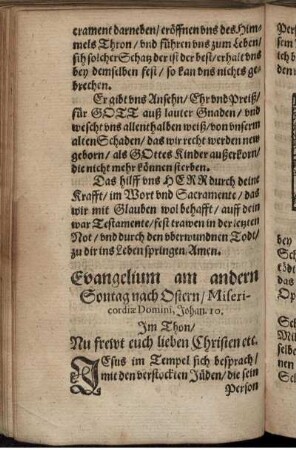 crament darneben/ eröffnen vns des Him-
mels Thron/ vnd führen vns zum Leben/
sih solcher Schatz der ist der best/ erhalt vns
bey demselben fest/ so kan vns nichts ge-
brechen.
Er gibt vns Ansehn/ Ehr vnd Preiß/
für GOTT auß lauter Gnaden/ vnd
wescht vns allenthalben weiß/ von vnserm
alten Schaden/ das wir recht werden new
geborn/ als GOttes Kinder außerkorn/
die nicht mehr können sterben.
Das hilff vns HERR durch deine
Krafft/ im Wort vnd Sacramente/ das
wir mit Glauben wol behafft/ auff dein
war Testamente/ fest trawen in der letzten
Not/ vnd durch den vberwundnen Todt/
zu dir ins Leben springen Amen.
Evangelium am andern
Sontag nach Ostern/ Miseri-
cordiæ Domini, Johan. 10.
Im Thon/
Nu frewt euch lieben Christen etc.
JEsus im Tempel sich besprach/
mit den verstockten Jüden/ die sein
Person